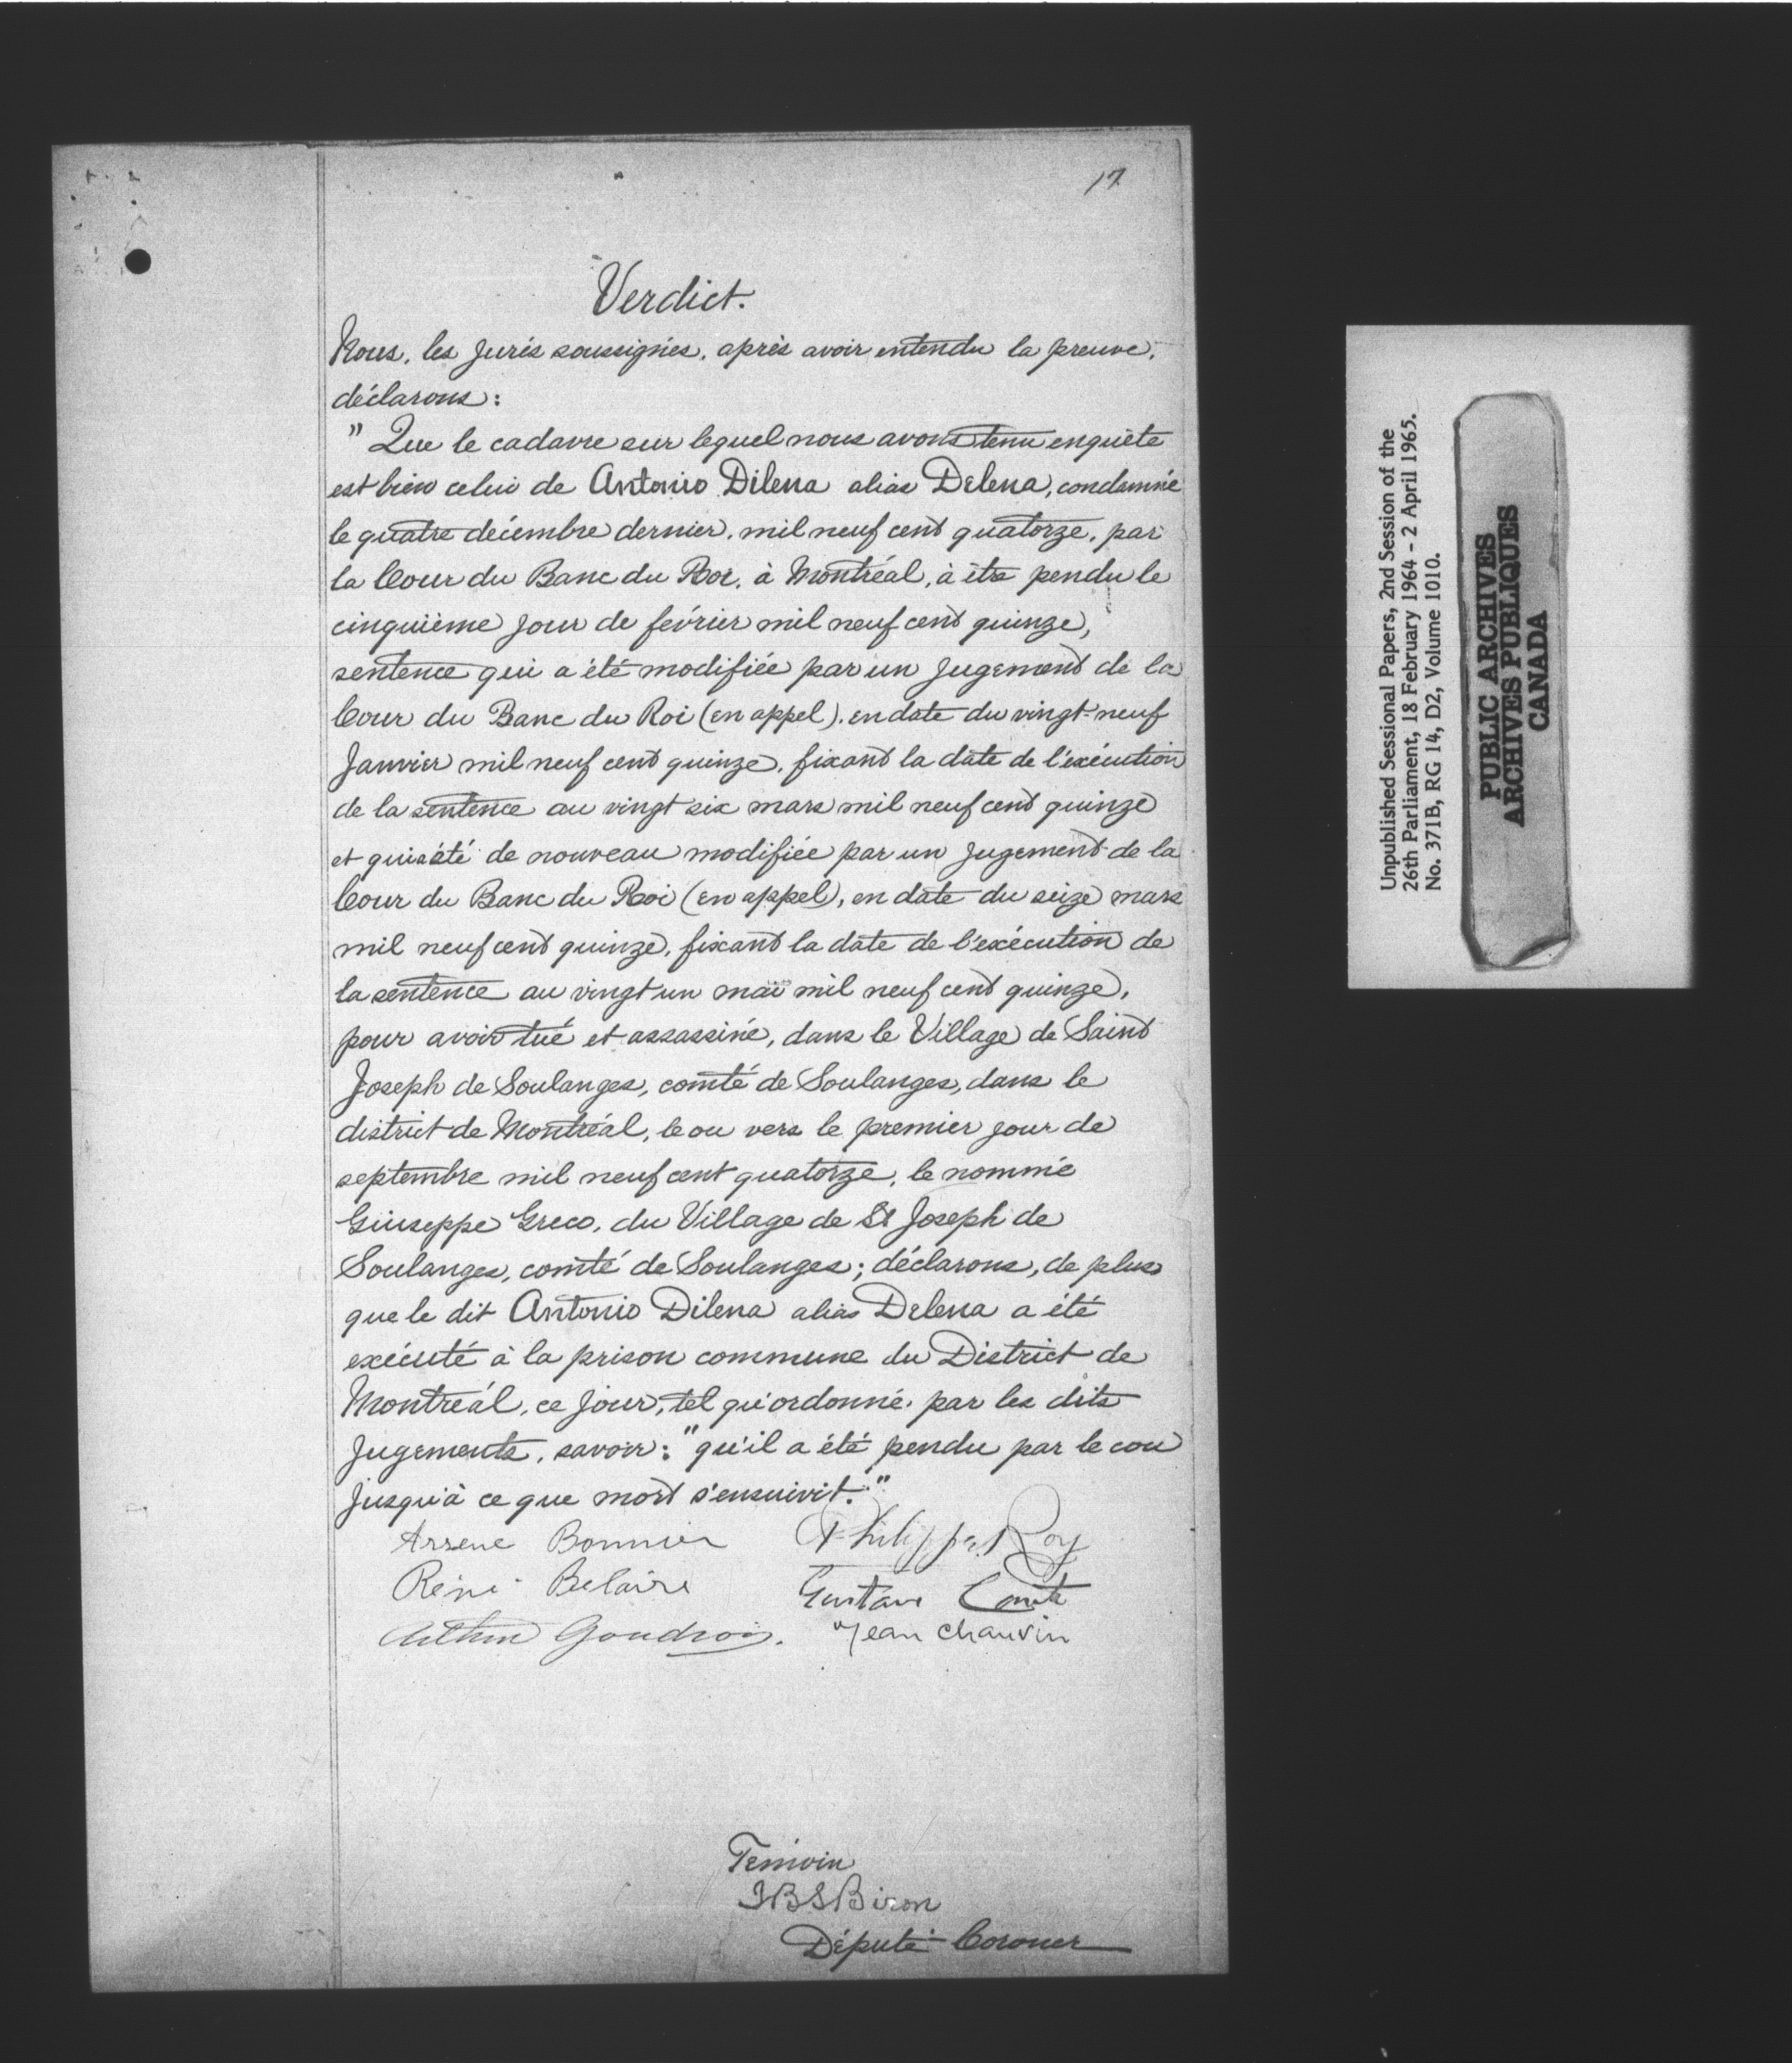 17
Verdict.
Nous, les jurés soussignés, après avoir entendu la preuve,
déclarons:
" Que le cadavre sur lequel nous avons tenu enquête
est bien celui de Antonio Dilena alias Delena, condamné
le quatre décembre dernier, mil neuf cent quatorze, par
la Cour du Banc du Roi, à Montréal, à être pendu le
cinquième jour de février mil neuf cent quinze,
sentence qui a été modifiée par un jugement de la
Cour du Banc du Roi (en appel), en date du vingt-neuf
Janvier mil neuf cent quinze, fixant la date de l'exécution
de la sentence au vingt six mars mil neuf cent quinze
et qui a été de nouveau modifiée par un jugement de la
Cour du Banc du Roi (en appel), en date du seize mars
mil neuf cent quinze, fixant la date de l'exécution de
la sentence au vingt un mai mil neuf cent quinze,
pour avoir tué et assassiné, dans le Village de Saint
Joseph de Soulanges, comté de Soulanges, dans le
district de Montréal, le ou vers le premier jour de
septembre mil neuf cent quatorze, le nommé
Giuseppe Greco, du Village de St Joseph de
Soulanges, comté de Soulanges; déclarons, de plus
que le dit Antonio Dilena alias Delena a été
exécuté à la prison commune du District de
Montréal, ce jour, tel qu'ordonné, par les dits
jugements, savoir: "qu'il a été pendu par le cou
jusqu'à ce que mort s'ensuivit."
Arsene Bonnier Philippe Roy
Réné Belaire Gustave Comte
Arthur Goudroi. Jean Chauvin
Témoin
JBS Biron
Député-Coroner
Unpublished Sessional Papers, 2nd Session of the
26th Parliament, 18 February 1964 - 2 April 1965.
No. 371B, RG 14, D2, Volume 1010.
PUBLIC ARCHIVES
ARCHIVES PUBLIQUES
CANADA